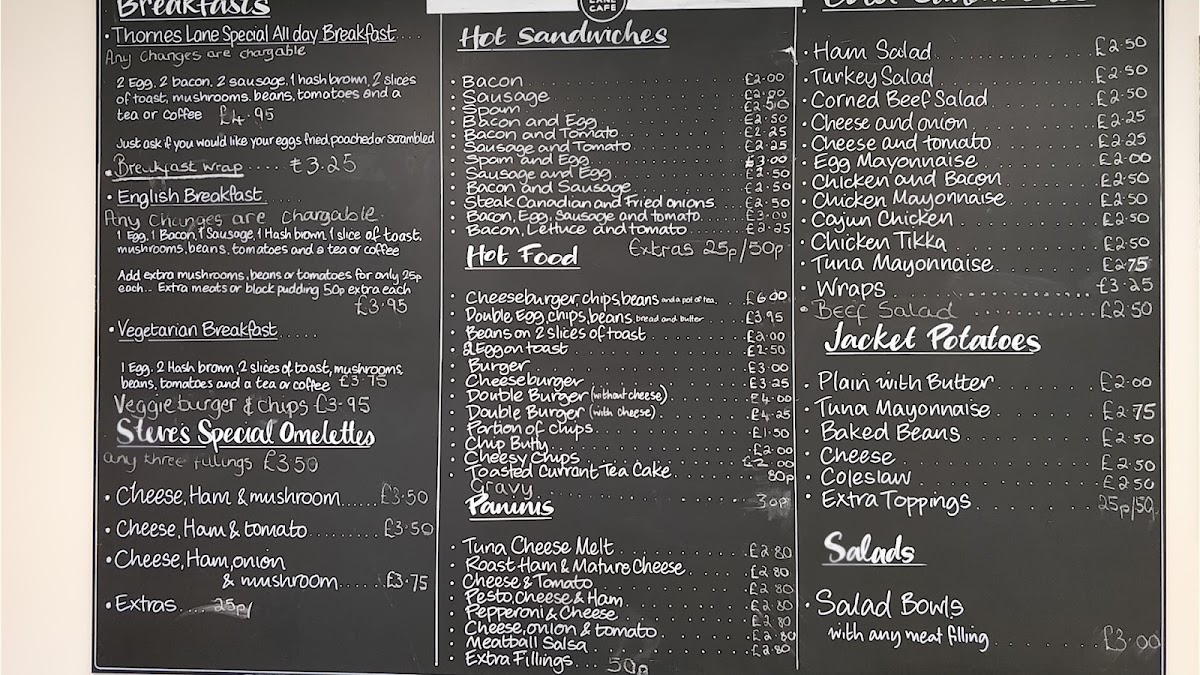 Breakfasts
• Thornes Lane Special All day Breakfast....
Any Changes are chargable
2 Egg, 2 bacon, 2 sausage, 1 hash brown, 2 slices
of toast, mushrooms, beans, tomatoes and a
tea or coffee £4.95
Just ask if you would like your eggs fried, poached or scrambled
• Breakfast wrap £3.25
• English Breakfast
Any Changes are chargable
1 Egg, 1 Bacon, 1 Sausage, 1 Hash brown, 1 slice of toast,
mushrooms, beans, tomatoes and a tea or coffee
Add extra mushrooms, beans or tomatoes for only 25p
each.. Extra meats or black pudding 50p extra each
£3.95
• Vegetarian Breakfast......
1 Egg, 2 Hash brown, 2 slices of toast, mushrooms
beans, tomatoes and a tea or coffee £3.75
Veggie burger & Chips £3.95
Steve's Special Omelettes
any three fillings £3.50
• Cheese, Ham & mushroom..... £3.50
• Cheese, Ham & tomato........ £3.50
• Cheese, Ham, onion
& mushroom...... £3.75
• Extras.... 25p/
LANE
CAFE
Hot Sandwiches
• Bacon £2.00
• Sausage £2.00
• Spam £2.50
• Bacon and Egg £2.50
• Bacon and Tomato £2.25
• Sausage and Tomato £2.25
• Spam and Egg £3.00
• Sausage and Egg £2.50
• Bacon and Sausage £2.50
• Steak Canadian and Fried onions £2.50
• Bacon, Egg, Sausage and tomato £3.00
• Bacon, Lettuce and tomato £2.25
Extras 25p/50p
Hot Food
• Cheeseburger, chips, beans and a pot of tea. £6.00
• Double Egg, chips, beans, bread and butter £3.95
• Beans on 2 slices of toast £2.00
• 2 Egg on toast £2.50
• Burger £3.00
• Cheeseburger £3.25
• Double Burger (without cheese) £4.00
• Double Burger (with cheese) £4.25
• Portion of Chips £1.50
• Chip Butty £2.00
• Cheesy Chips £2.00
• Toasted Currant Tea Cake 80p
Gravy 30p
Paninis
• Tuna Cheese Melt £2.80
• Roast Ham & Mature Cheese £2.80
• Cheese & Tomato £2.80
• Pesto, cheese & Ham £2.80
• Pepperoni & Cheese £2.80
• Cheese, onion & tomato £2.80
• Meatball Salsa £2.80
• Extra Fillings... 50p
• Ham Salad £2.50
• Turkey Salad £2.50
• Corned Beef Salad £2.50
• Cheese and onion £2.25
• Cheese and tomato £2.25
• Egg Mayonnaise £2.00
• Chicken and Bacon £2.50
• Chicken Mayonnaise £2.50
• Cajun Chicken £2.50
• Chicken Tikka £2.50
• Tuna Mayonnaise £2.75
• Wraps £3.25
• Beef Salad £2.50
Jacket Potatoes
• Plain with Butter £2.00
• Tuna Mayonnaise £2.75
• Baked Beans £2.50
• Cheese £2.50
• Coleslaw £2.50
• Extra Toppings 25p/50
Salads
• Salad Bowls
with any meat filling £3.00